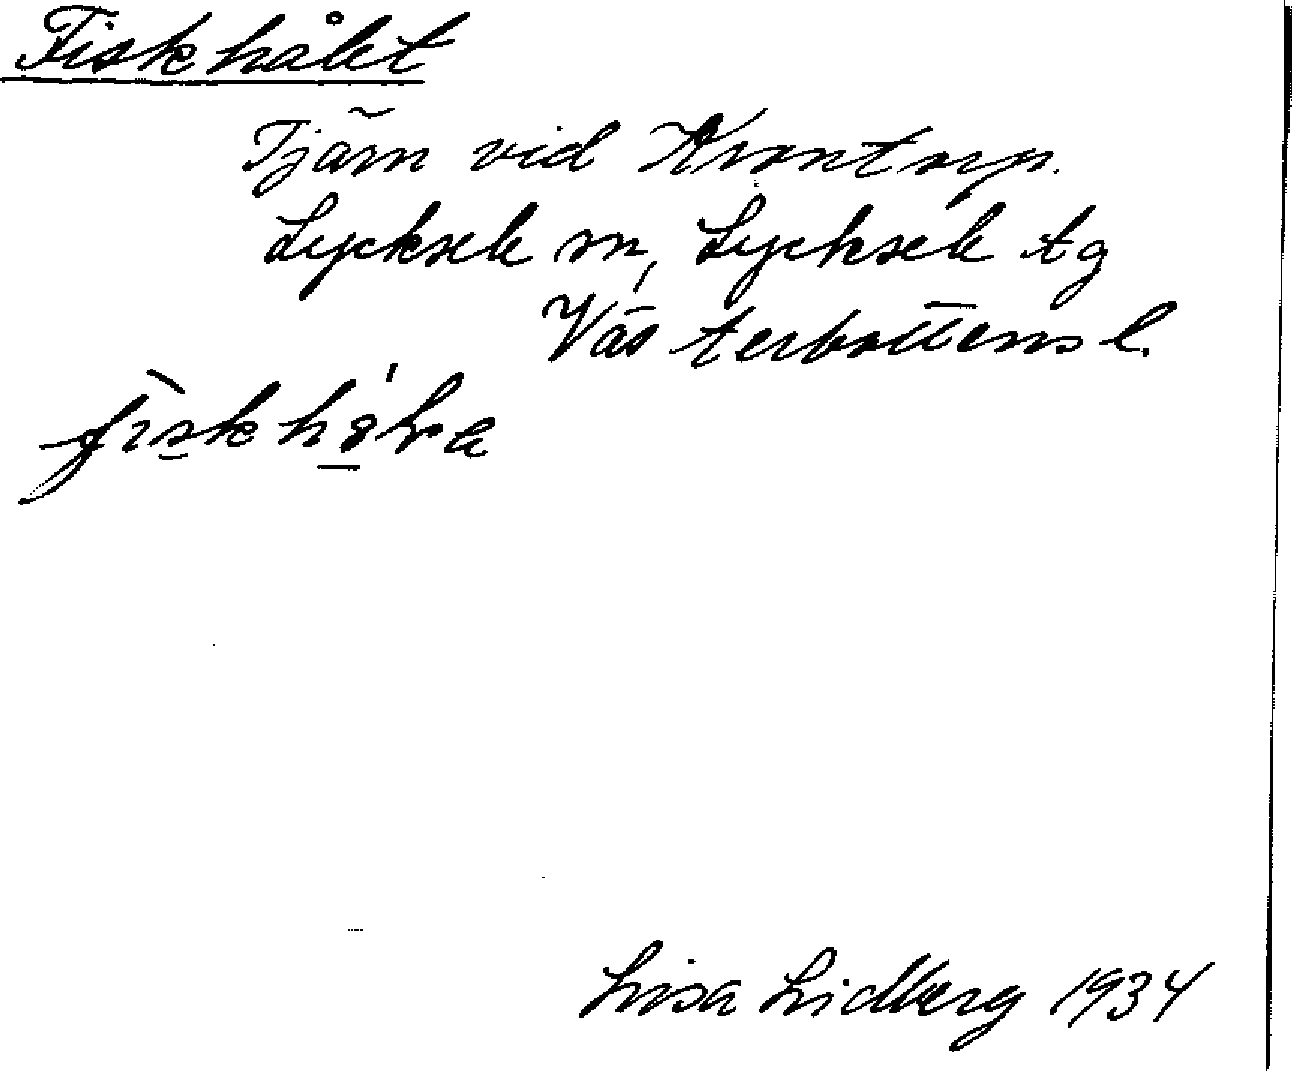 Fiskhålet
Tjärn vid Krontorp.
Lycksele sn, Lycksele tg
Västerbottens l.
Lisa Lidberg 1934